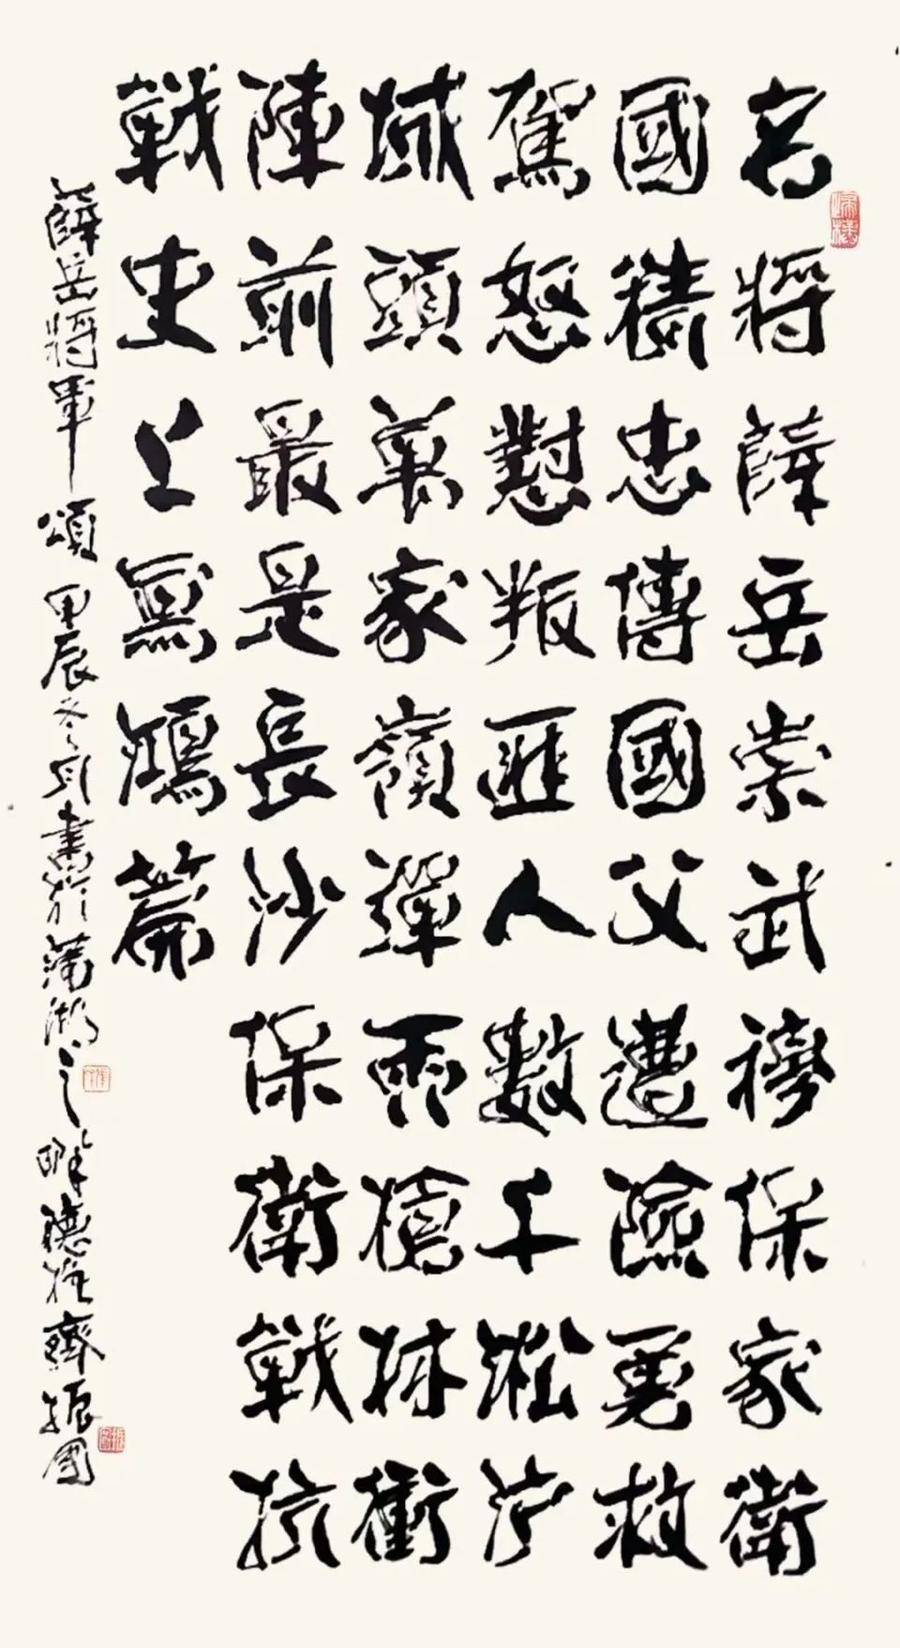 名將薛岳崇武穆保家衛
國忠傳國父遭險勇救
駕怒懟叛匪人數千淞沪
城頭萬家嶺彈雨槍林衝
陣前最是長沙保衛戰抗
戰史上寫鴻篇
薛岳將軍頌 甲辰冬月書於蒲湖之畔聽松齋振國